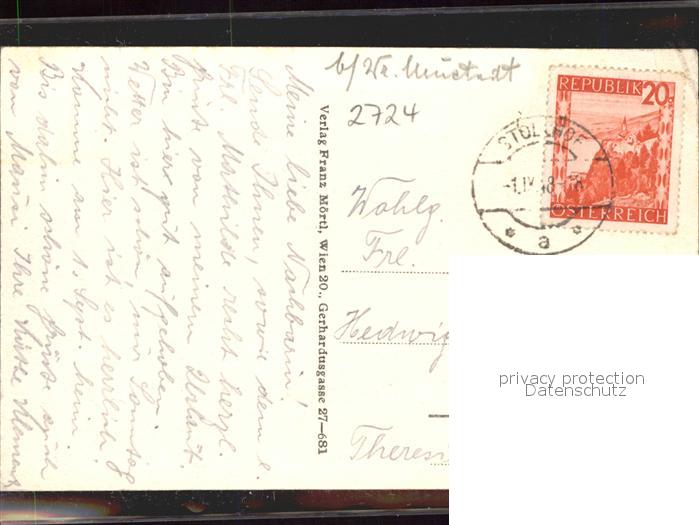 b/Wr. Neustadt
2724
REPUBLIK 20g
ÖSTERREICH
STOLLHOF
a
Wohlg.
Frl.
Hedwig
Theres
Verlag Franz Mörtl, Wien 20., Gerhardusgasse 27—681
Meine liebe Nachbarin!
Sende Ihnen, sowie dem l.
Frl. Mathilde recht herzl.
Grüße von meinem Urlaub.
Bin hier gut aufgehoben.
Wetter ist schön, nur Sonntag
nicht. Hier ist es herrlich!
Komme am 1. Sept. heim
Bis dahin schöne Grüße auch
von Mama Ihre
privacy protection
Datenschutz